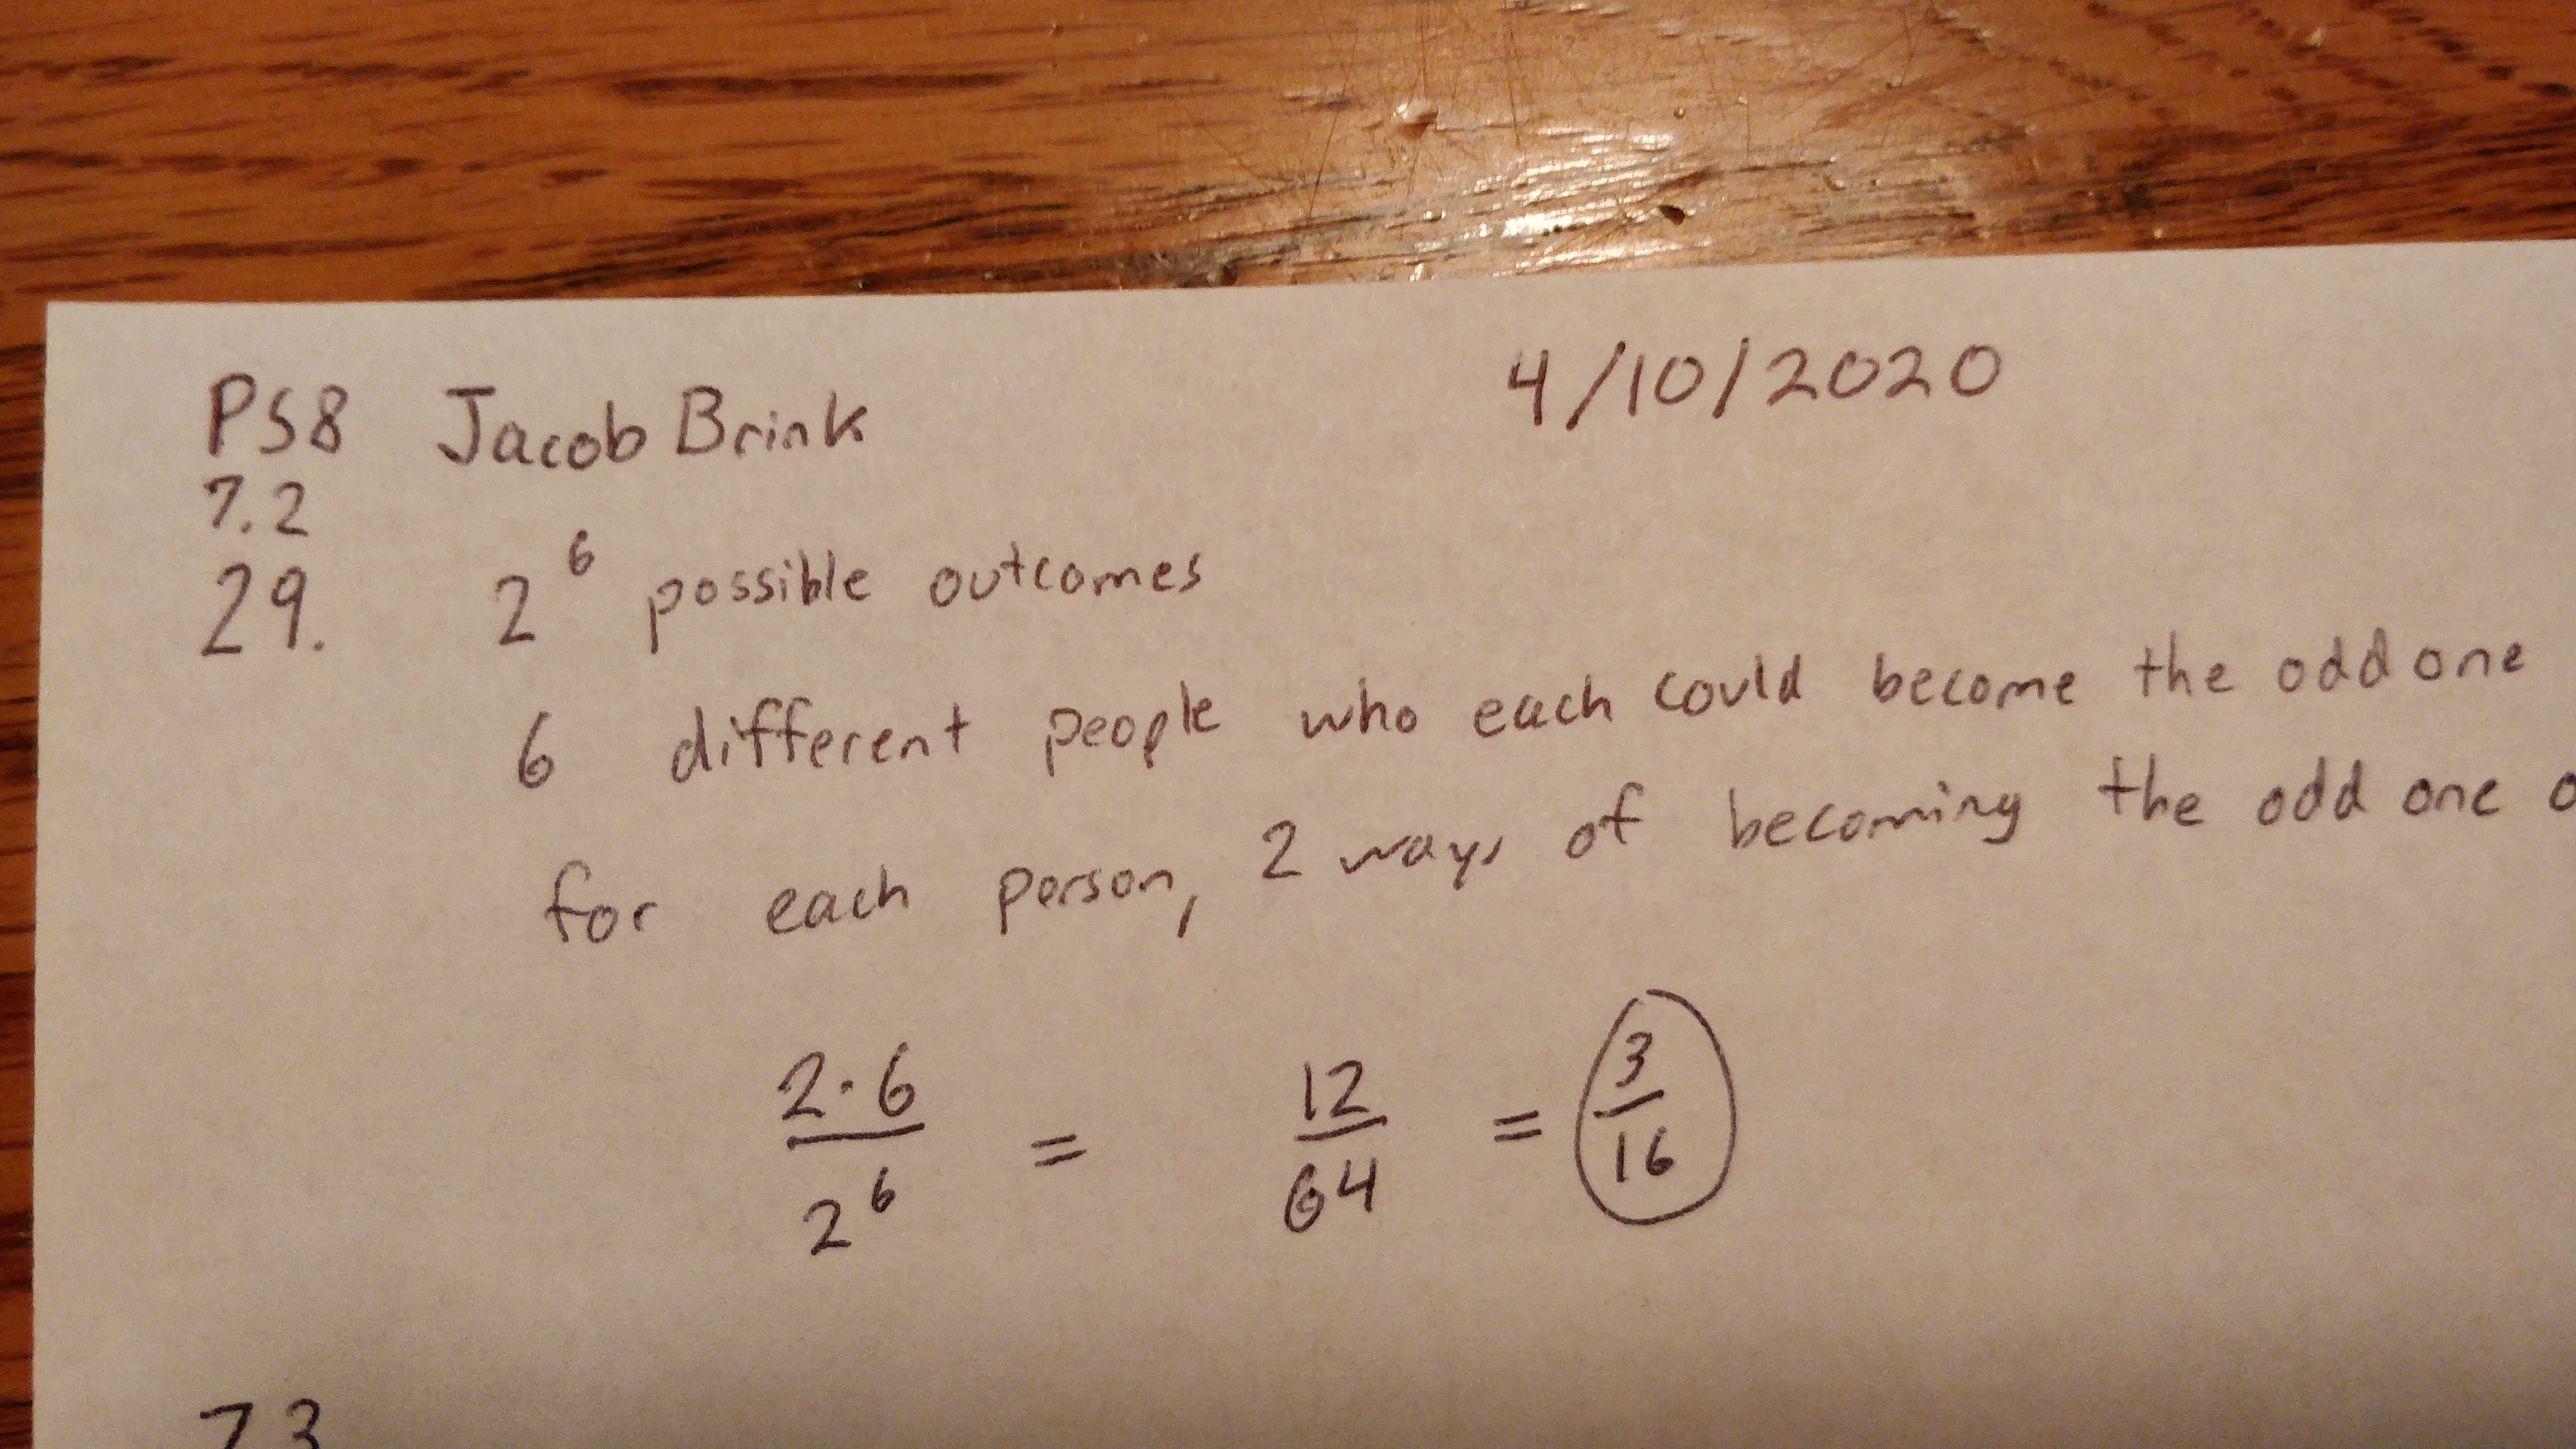 PS8 Jacob Brink 4/10/2020
7.2
29. 2^6 possible outcomes
6 different people who each could become the odd one
for each person, 2 ways of becoming the odd one
2·6/2^6 = 12/64 = 3/16
7 3